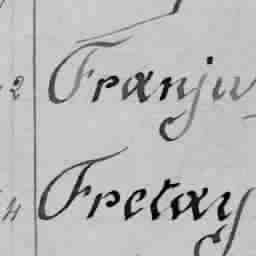 2 Franju
4 Fretay